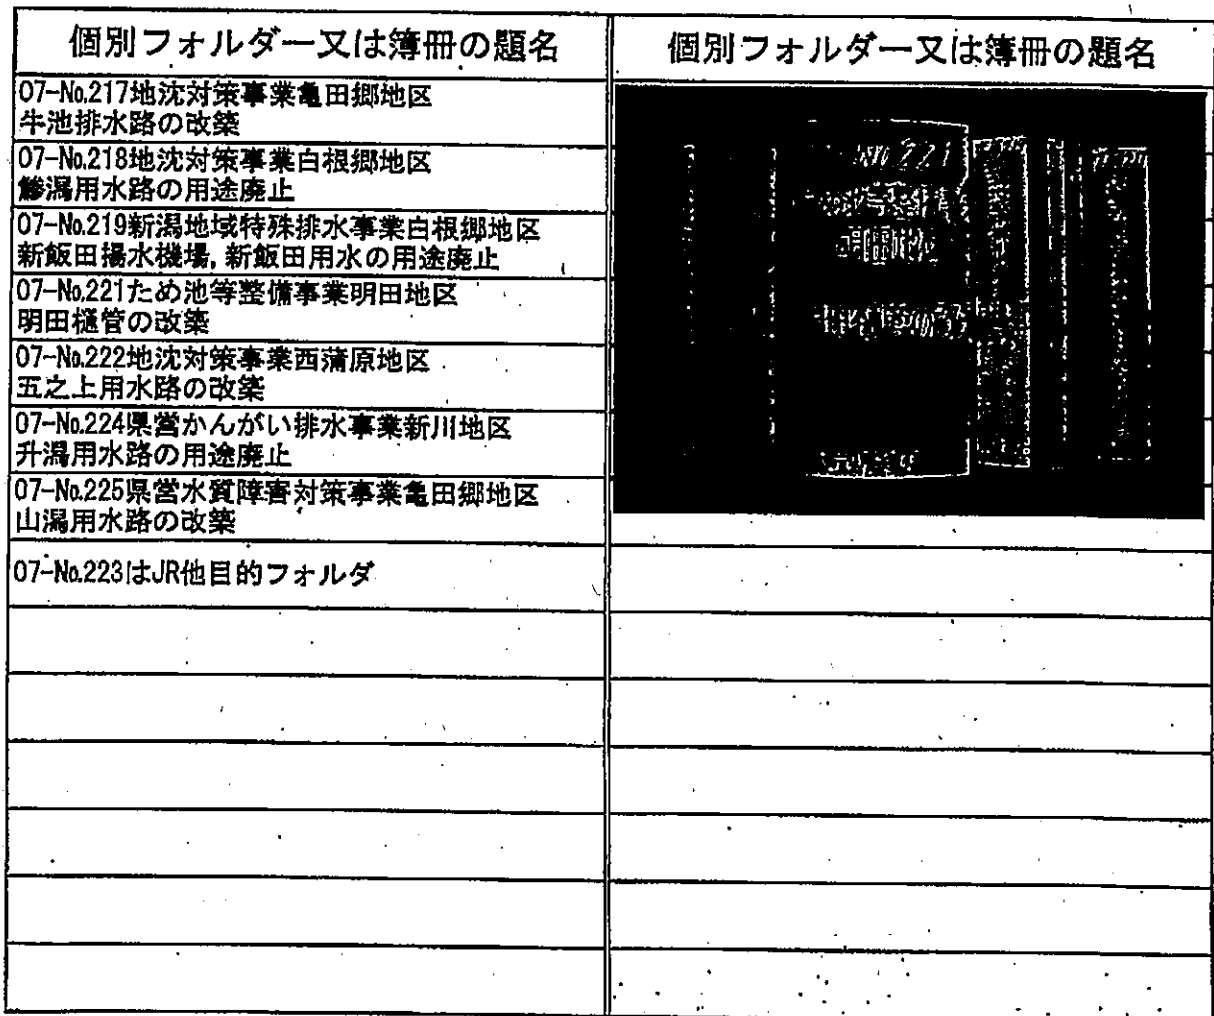 個別フォルダー又は簿冊の題名
個別フォルダー又は簿冊の題名
07-No.217地沈対策事業亀田郷地区
牛池排水路の改築
07-No.218地沈対策事業白根郷地区
鯵潟用水路の用途廃止
07-No.219新潟地域特殊排水事業白根郷地区
新飯田揚水機場,新飯田用水の用途廃止
07-No.221ため池等整備事業明田地区
明田樋管の改築
07-No.222地沈対策事業西蒲原地区
五之上用水路の改築
07-No.224県営かんがい排水事業新川地区
升潟用水路の用途廃止
07-No.225県営水質障害対策事業亀田郷地区
山潟用水路の改築
07-No.223はJR他目的フォルダ
221